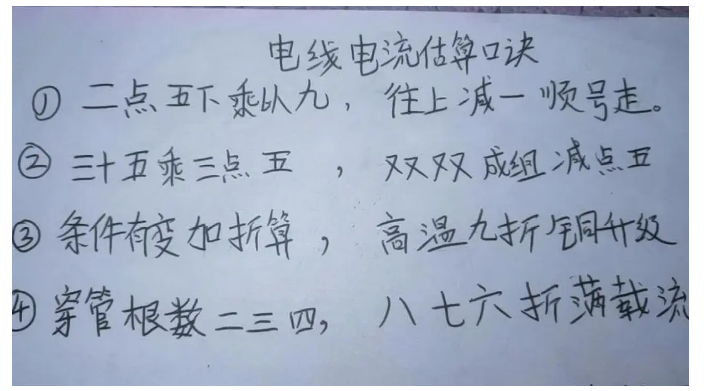 电线电流估算口诀
① 二点五下乘以九，往上减一顺号走。
② 三十五乘三点五，双双成组减点五
③ 条件有变加折算，高温九折铜升级
④ 穿管根数二三四，八七六折满载流